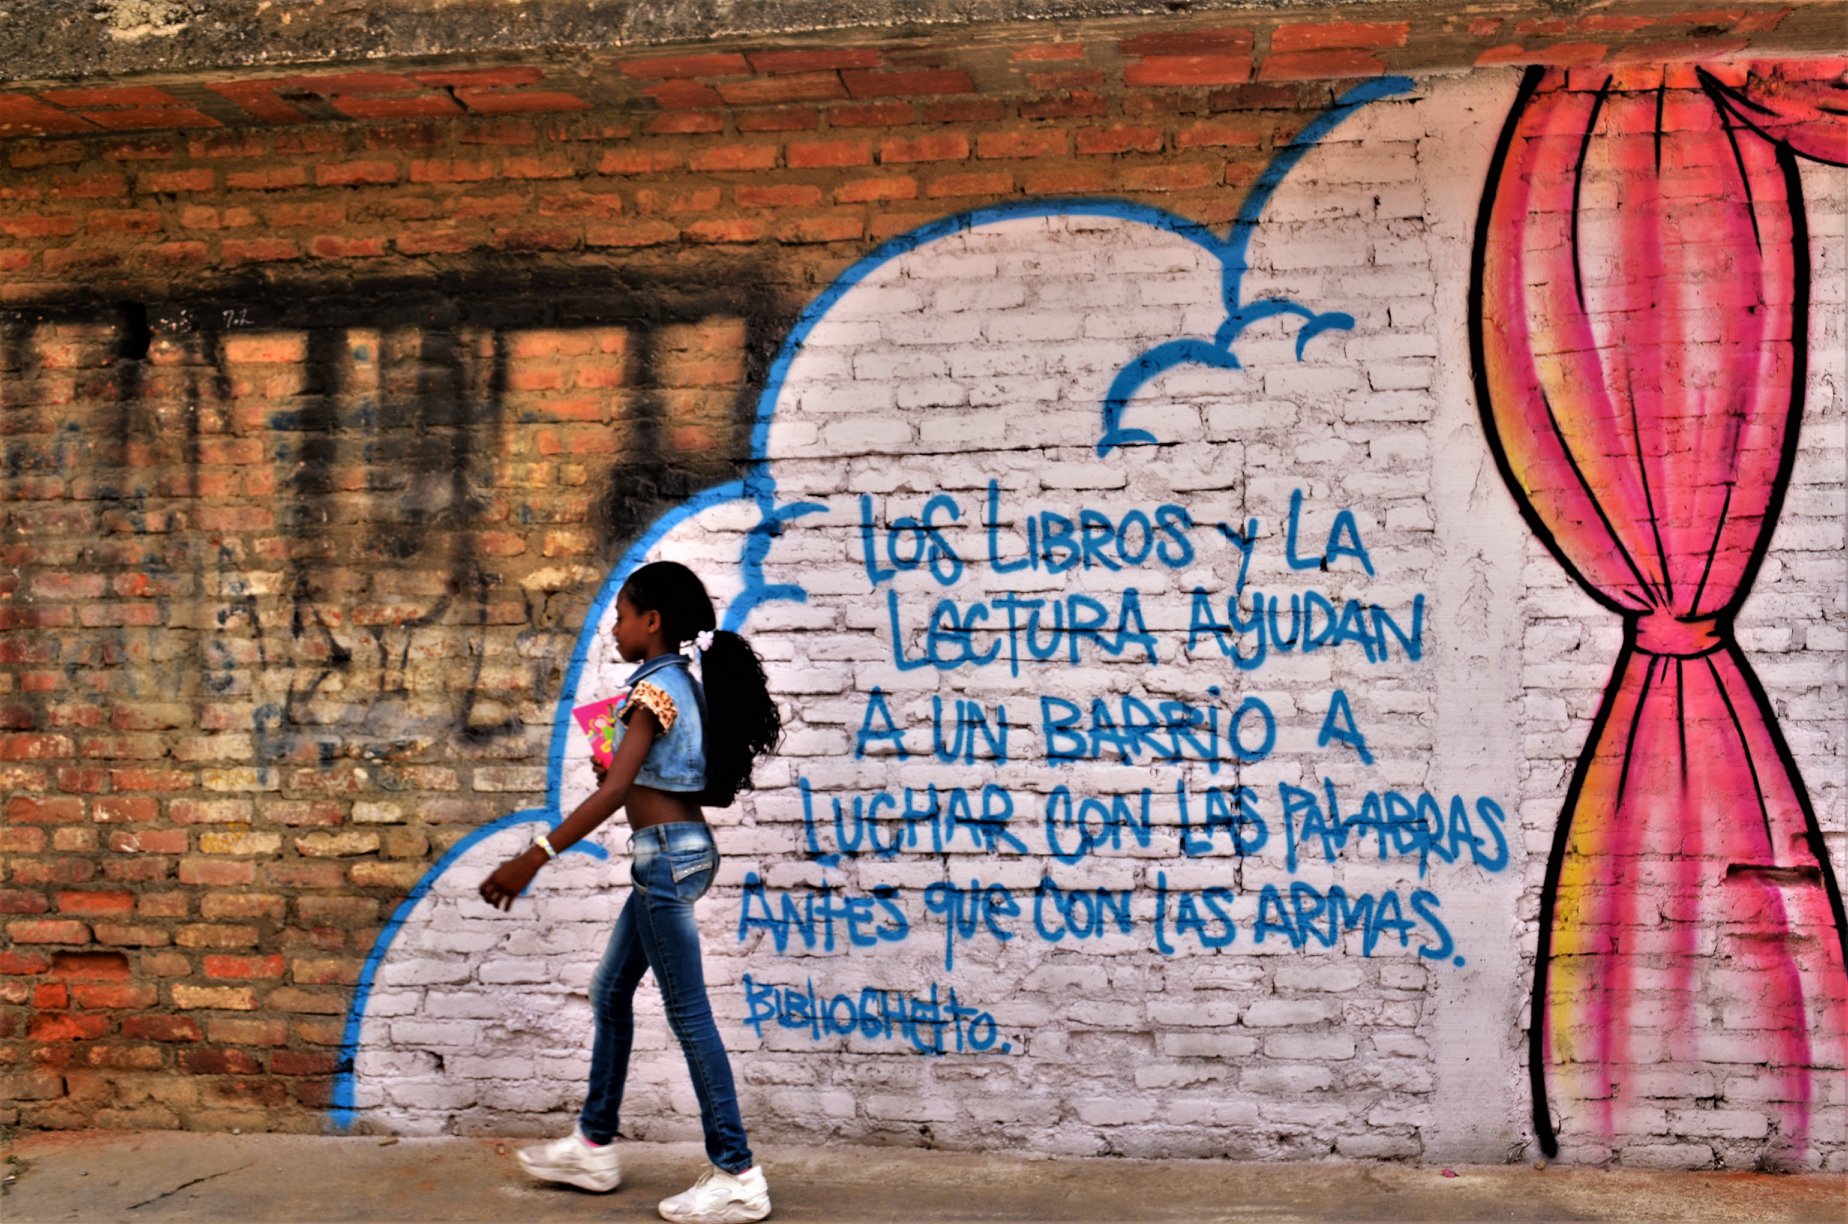 LOS LIBROS Y LA
LECTURA AYUDAN
A UN BARRIO A
LUCHAR CON LAS PALABRAS
ANTES QUE CON LAS ARMAS.
BIBLIOGHETTO.